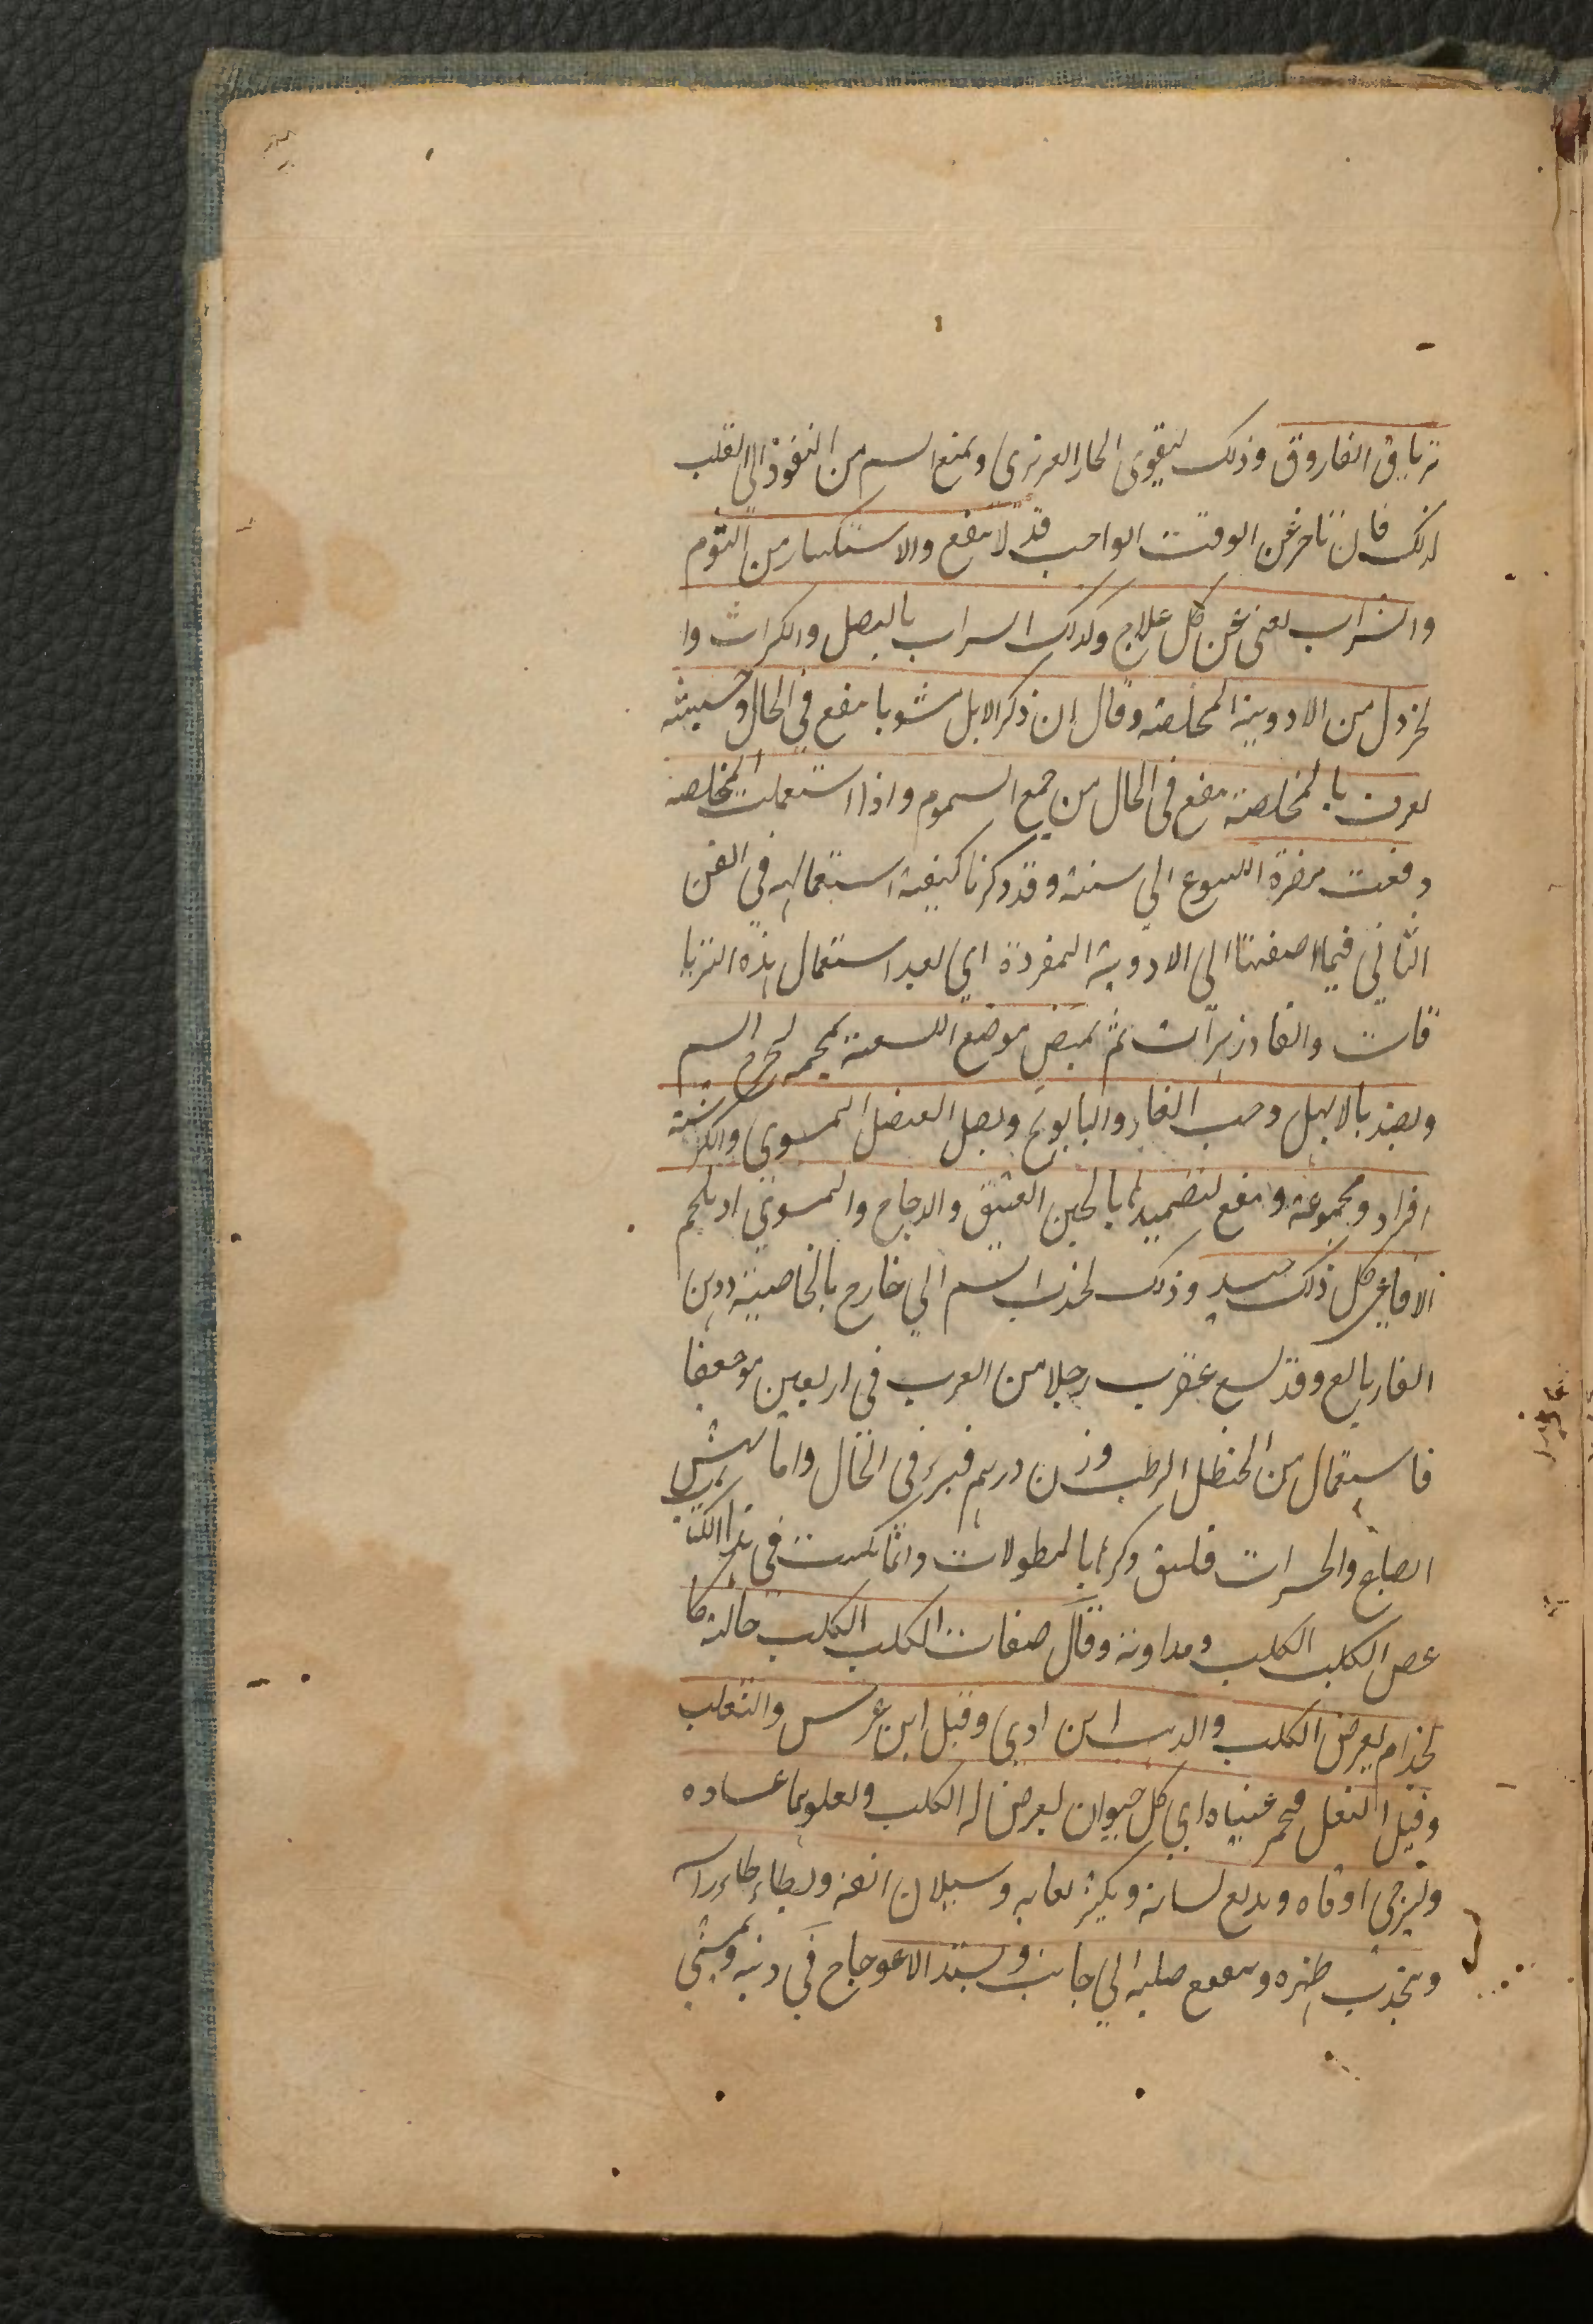 ترياق الفاروق وذلك ليقوى الحار الغريزى ويمنع السم من النفوذ الى القلب
لذلك فان تاخر عن الوقت الواجب قد لا ينفع والاستكثار من الثوم
والشراب يغنى عن كل علاج وكذلك الشراب بالبصل والكراث وا
لخردل من الادوية المخلصة وقال ان ذكر الابل مشويا ينفع فى الحال وحشيشة
تعرف بالمخلصة ينفع فى الحال من جميع السموم واذا استعملت المخلصة
دفعت مضرة اللسوع الى سنة وقد ذكرنا كيفية استعمالها فى الفن
الثانى فيما اضفنا الى الادوية المفردة اى بعد استعمال هذه التريا
قات والفادزهرات ثم يمص موضع اللسعة بمحجمة لتخرج السم
ويضمد بالابهل وحب الغار والبابونج وبصل العنصل المشوى والكرسنة
افراد ومجموعة وينفع تضميدها بالجبن العتيق والدجاج والمشوى او بلحم
الافاعى كل ذلك جيد وذلك لجذب السم الى خارج بالخاصية ودهن
الغار بالغ وقد لسع عقرب رجلا من العرب فى اربعين موضعا
فاستعمال من الحنظل الرطب وزن درهم فبرئ فى الحال واما نهش
السباع والحشرات فليق ذكرها بالمطولات وانما يكتب فى هذا الكتاب
عض الكلب الكلب ومداوته وقال صفات الكلب الكلب حالة كا
لجذام يعرض الكلب والذئب ابن اوى وقيل ابن عرس والثعلب
وقيل البغل فحمر عيناه اى كل حيوان يعرض له الكلب وتعلوهما غشاوه
وترخى اذناه ويدلع لسانه ويكثر لعابه وسيلان انفه ويطاطئ راسه
وينحدب ظهره ويتعوج صلبه الى جانب ويستد الاعوجاج فى ذنبه ويمشى